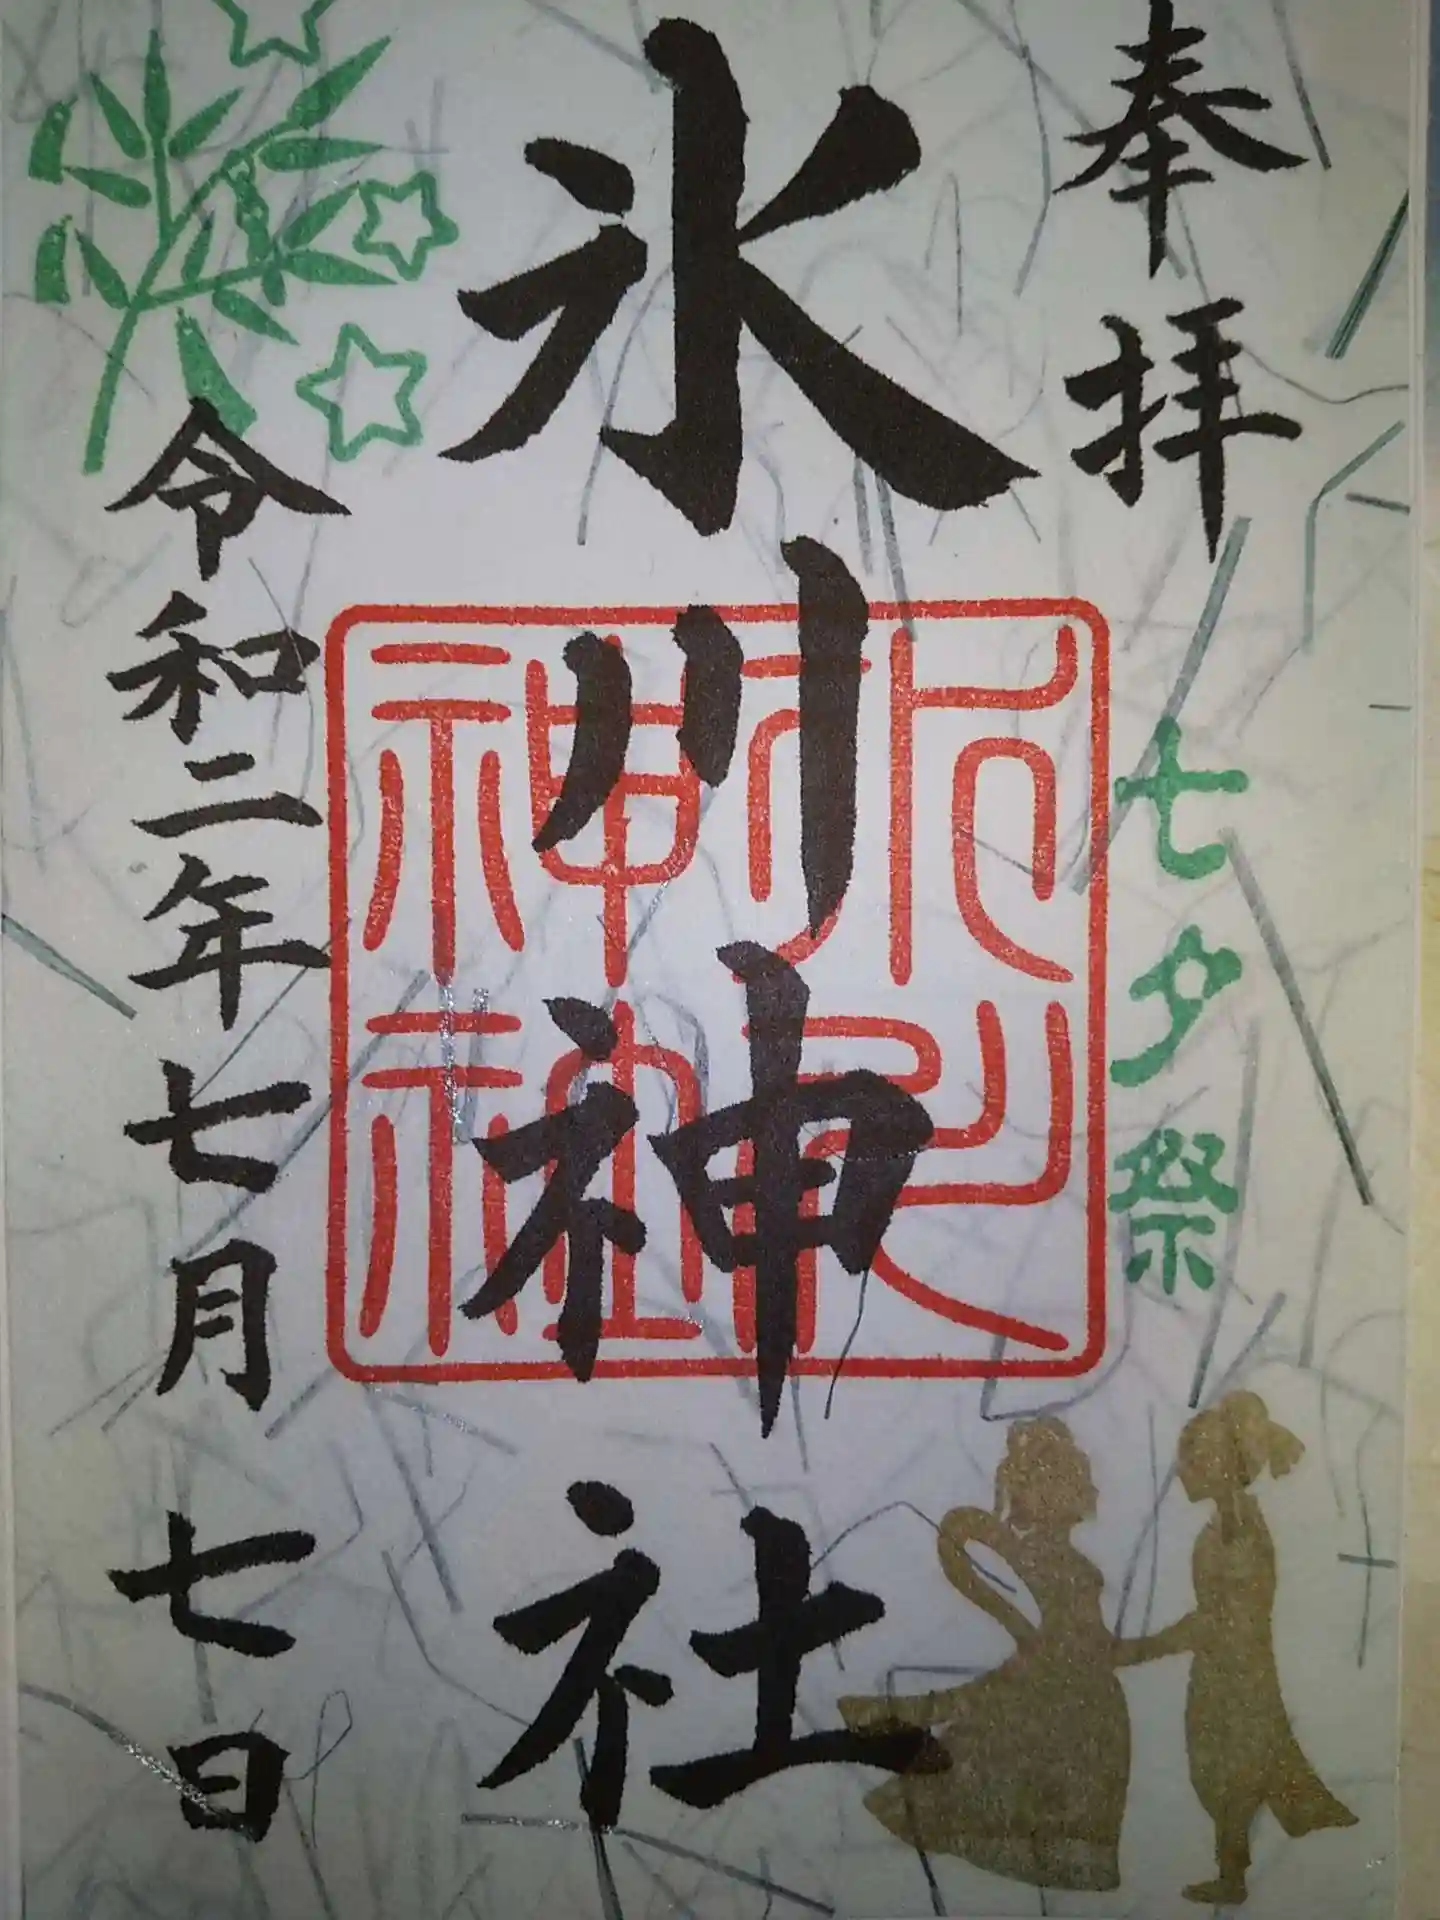 奉拝
七夕祭
氷川神社
氷川
神社
令和二年七月七日